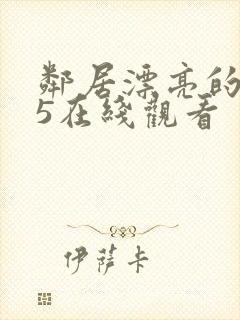 鄰居漂亮的
5在綫觀看
伊薩卡